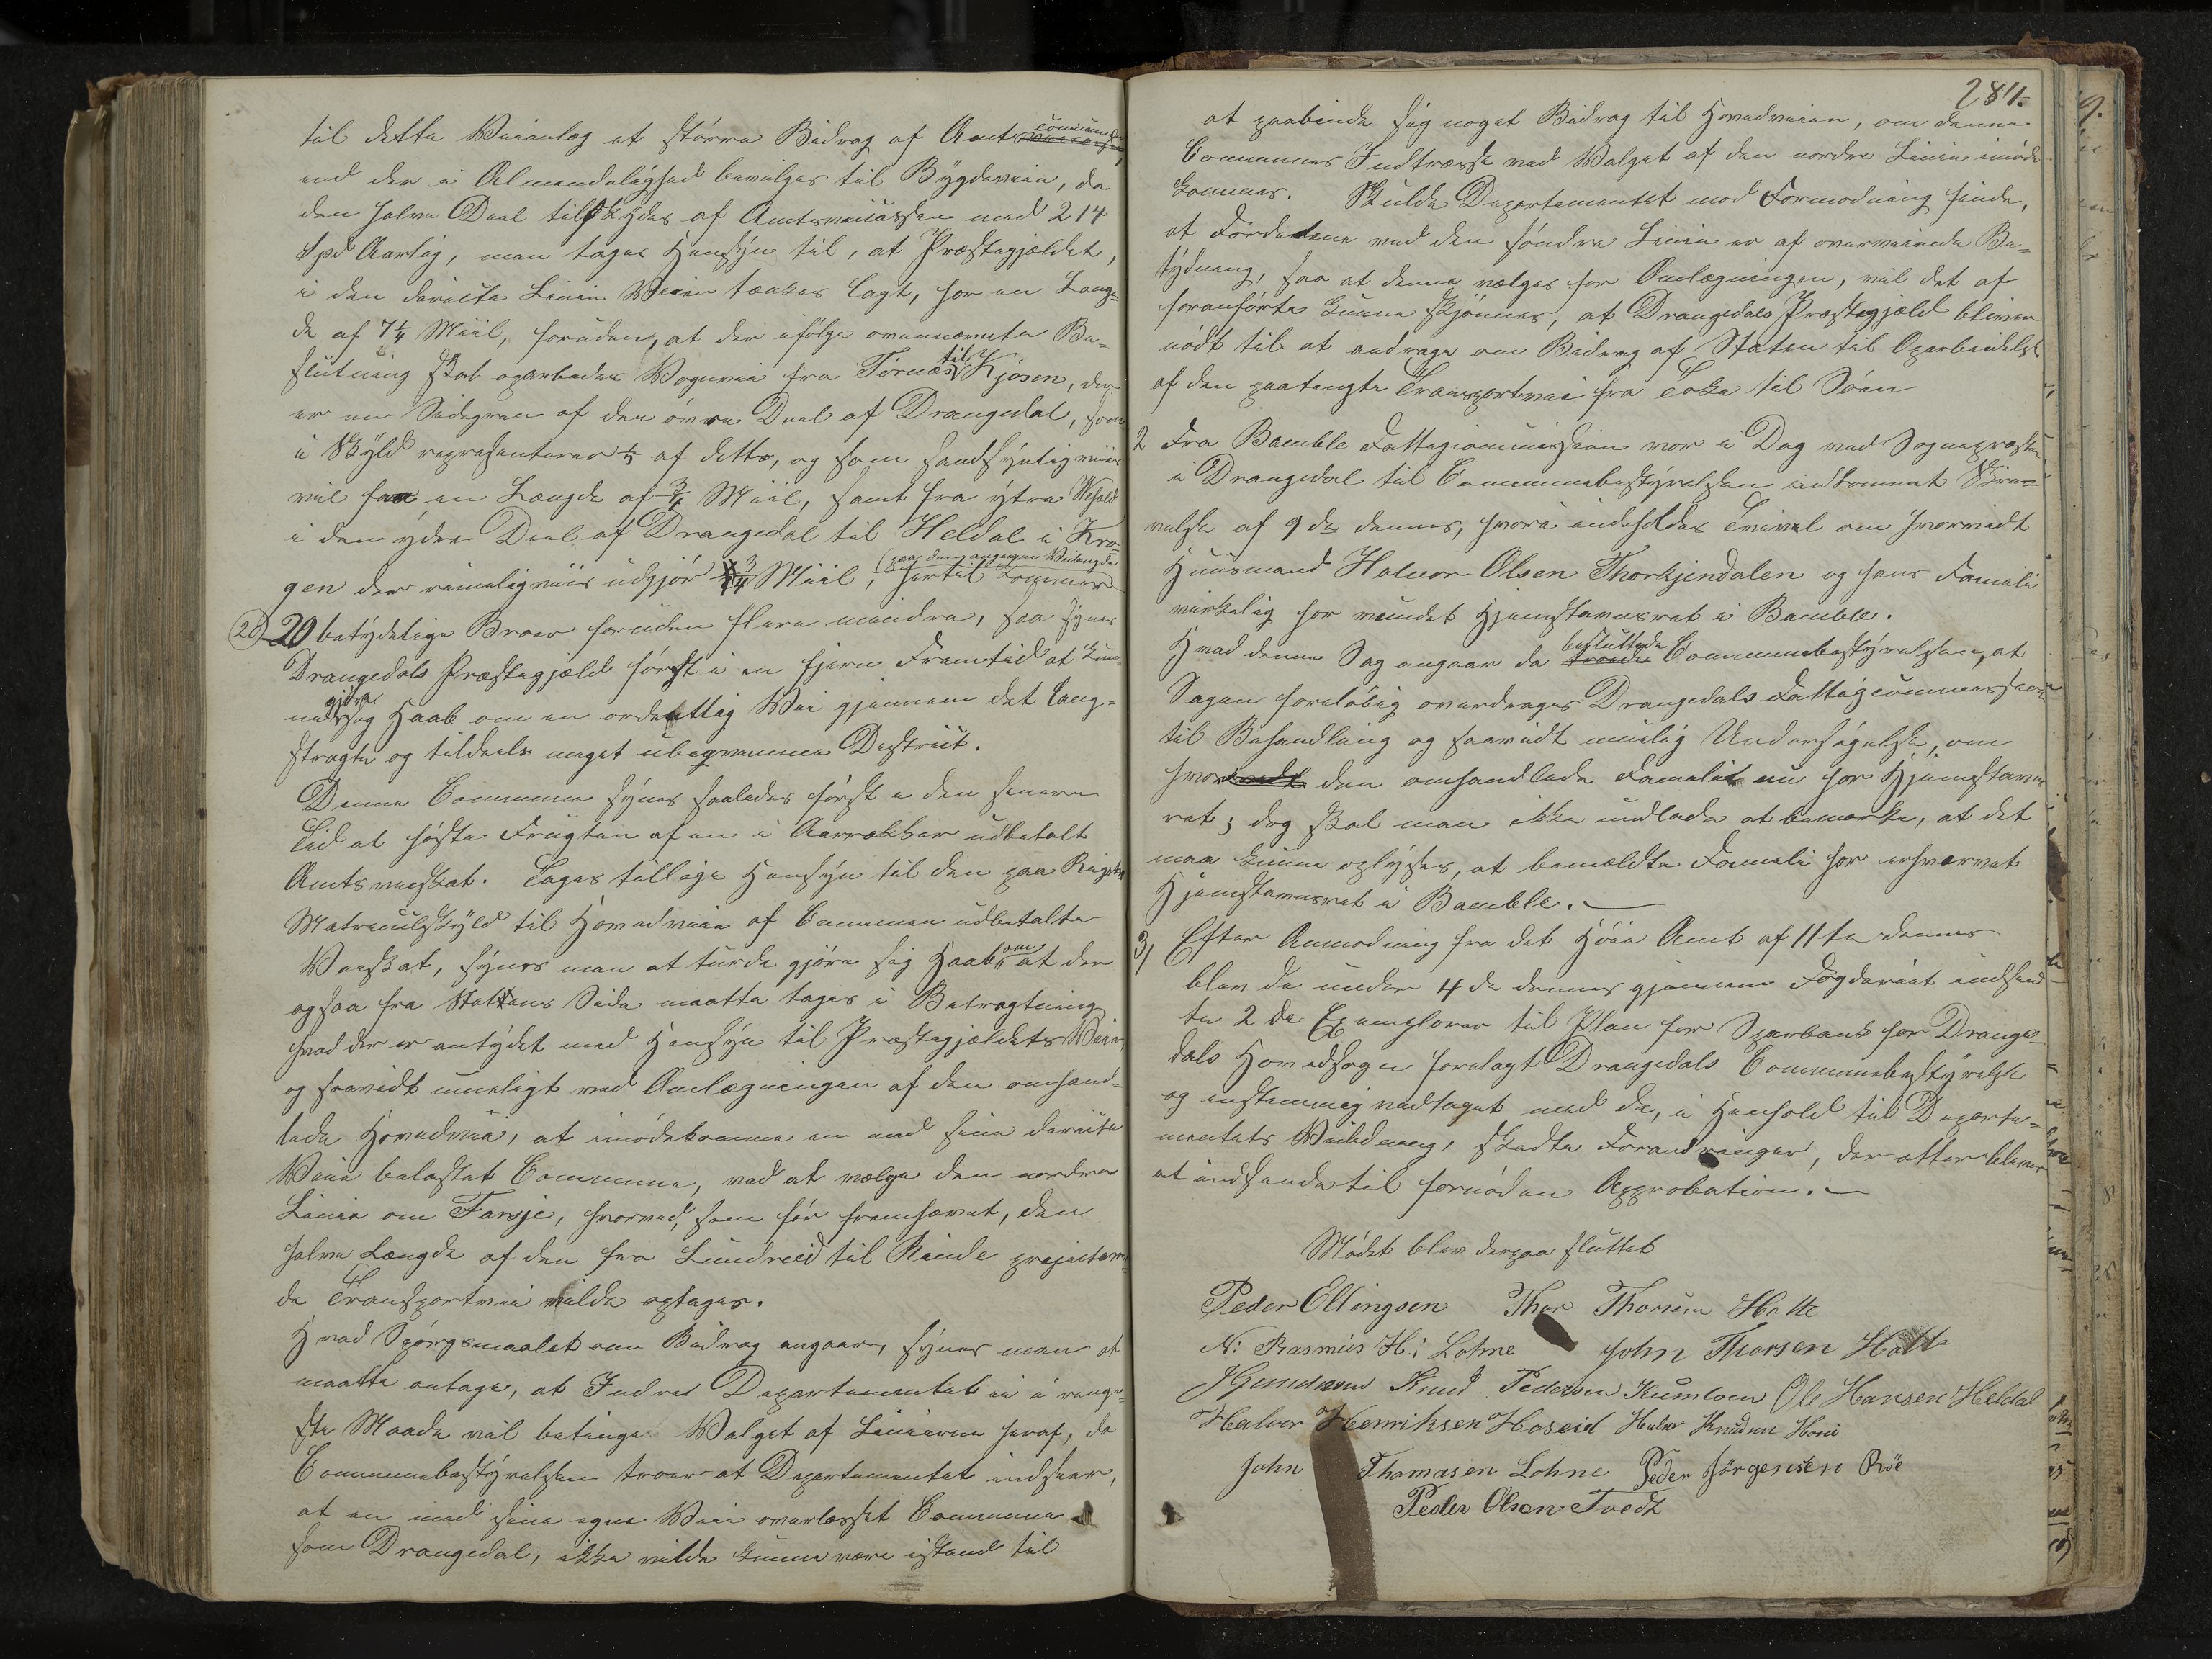 til dette Veianlæg et større Bidrag af Amtscommunen
end der i Almindelighed bevilges til Bygdeveie, da
den halve Deel tilskydes af Amtsveicassen med 214
Spd Aarlig, man tages Hensyn til, at Præstegjeldet,
i den directe Linie Veien tænkes lagt, har en Læng-
de af 7¼ Miil, foruden, at der ifølge ovennævnte Be-
slutning skal oparbeides Vognvei fra Tørnæs til Kjosen, der
er en Sidegren af den øvre Deel af Drangedal, som
i Skyld repræsenterer af dette, og som sandsynligviis
vil faa en Længde af ¾ Miil, samt fra ytre
i den ydre Deel af Drangedal til Heldal i Kra-
gerø der rimeligviis udgjør ¾ Miil, hertil kommer
(paa den angivne Veilængde
20) 20 betydelige Broer foruden flere mindre, saa synes
Drangedals Præstegjæld først i en fjern Fremtid at kun-
ne gjøre sig Haab om en ordentlig Vei gjennem det lang-
stragte og tildeels meget ubeqvemme District.
Denne Commune synes saaledes først i den senere
Tid at høste Frugten af en i Aarrækker udbetalt
Amtsveiskat. Tages tillige Hensyn til den paa Rigets
Matriculskyld til Hovedveie af Communen udbetalte
Veiskat, synes man at turde gjøre sig Haab om at der
ogsaa fra Statens Side maatte tages i Betragtning
hvad der er antydet med Hensyn til Præstegjældets Veie,
og saavidt mueligt ved Omlægningen af den omhand-
lede Hovedvei, at imødekomme en med sine directe
Veie belastet Commune, ved at vælge den nordre
Linie om Farsje, hvorved, som før fremhævet, den
halve Længde af den fra Lundreid til Rinde projecter-
de Transportvei vilde optages.
Hvad Spørgsmaalet om Bidrag angaar, synes man at
maatte antage, at Indre Departementet ei i ringe-
ste Maade vil betinge Valget af Linierne heraf, da
Communebestyrelsen troer at Departementet indseer,
at en med sine egne Veie overlæsset Commune
som Drangedal, ikke vilde kunne være istand til
284.
at paabinde sig noget Bidrag til Hovedveien, om denne
Communes Indtræsse ved Valget af den nordre Linie imøde
kommes. Skulde Departementet mod Formodning finde,
at Fordelene ved den søndre Linie er af overveiende Be-
tydning, saa at denne vælges for Omlægningen, vil det af
foranførte kunne skjønnes, at Drangedals Præstegjæld bliver
nødt til at andrage om Bidrag af Staten til Oparbeidelse
af den paatænkte Transportvei fra Toke til Søen
2 Fra Bamble Fattigcommission var i Dag ved Sognepræsten
i Drangedal til Communebestyrelsen indkommet Skri-
velse af 9de dennes, hvori indeholdes Tvivl om hvorvidt
Huusmand Halvor Olsen Thorkjendalen og hans Familie
virkelig har vundet Hjemstavnsret i Bamble.
Hvad denne Sag angaar da besluttede Communebestyrelsen, at
Sagen foreløbig overdrages Drangedals Fattigcommission
til Behandling og saavidt muelig Undersøgelse, om
hvor den omhandlede Familie nu har Hjemstavns
ret; dog skal man ikke undlade at bemærke, at det
maa kunne oplyses, at bemældte Familie har erhvervet
Hjemstavnsret i Bamble.
3) Efter Anmodning fra det Høie Amt af 11te dennes
blev de under 4de dennes gjennem Fogderiet indsend-
te 2de Exemplarer til Plan for Sparbank for Drange-
dals Hovedsogn forelagt Drangedals Communebestyrelse
og enstemmig vedtaget med de, i Henhold til Departe-
mentets Veiledning, skedte Forandringer, der atter bliver
at indsende til fornøden Approbation.
Mødet blev derpaa sluttet
Peder Ellingsen Thor Thorsen Holte
N: Rasmus H: Lohne John Thorsen Holte
Knud Pedersen Kumloen Ole Hansen Heldal
Halvor Henriksen Hoseid Halvor Knudsen
John Thomasen Lohne Peder Jørgensen Röe
Peder Olsen Tvedt